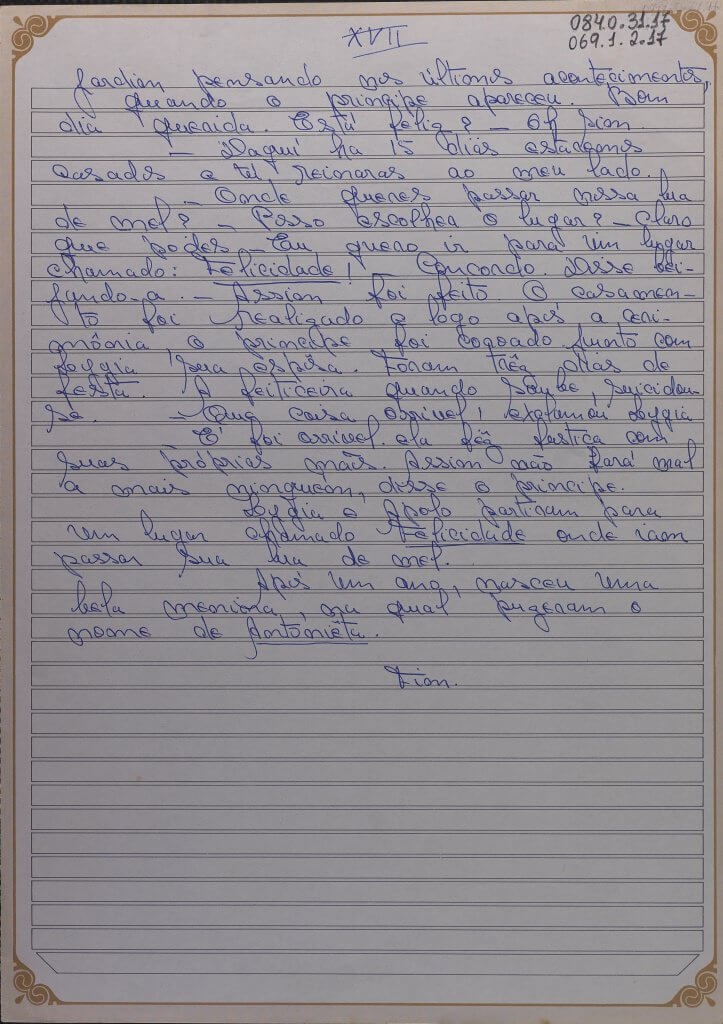 0840.31.17
069.1.2.17
XVII
jardim pensando nos últimos acontecimentos,
quando o principe apareceu. Bom
dia querida. Está feliz? – Oh sim.
– Daqui ha 15 dias estaremos
casados e tu reinaras ao meu lado.
– Onde queres passar nossa lua
de mel? – Posso escolher o lugar? – Claro
que podes – Eu quero ir para um lugar
chamado: Felicidade! – Concordo. Disse bei-
jando-a. – Assim foi feito. O casamen-
to foi realizado e logo após a ceri-
mônia, o principe foi coroado junto com
Loggia sua espôsa. Foram três dias de
festa. A feiticeira quando soube, suicidou-
se. – Que coisa orrivel, exclamou Loggia
– E foi orrivel. ela fêz justiça com
suas próprias mãos. Assim não fará mal
a mais ninguém, disse o principe.
Loggia e Apolo partiram para
um lugar chamado Felicidade onde iam
passar sua lua de mel.
Após um ano, nasceu uma
bela menina, na qual puzeram o
nome de Antoniêta.
Fim.